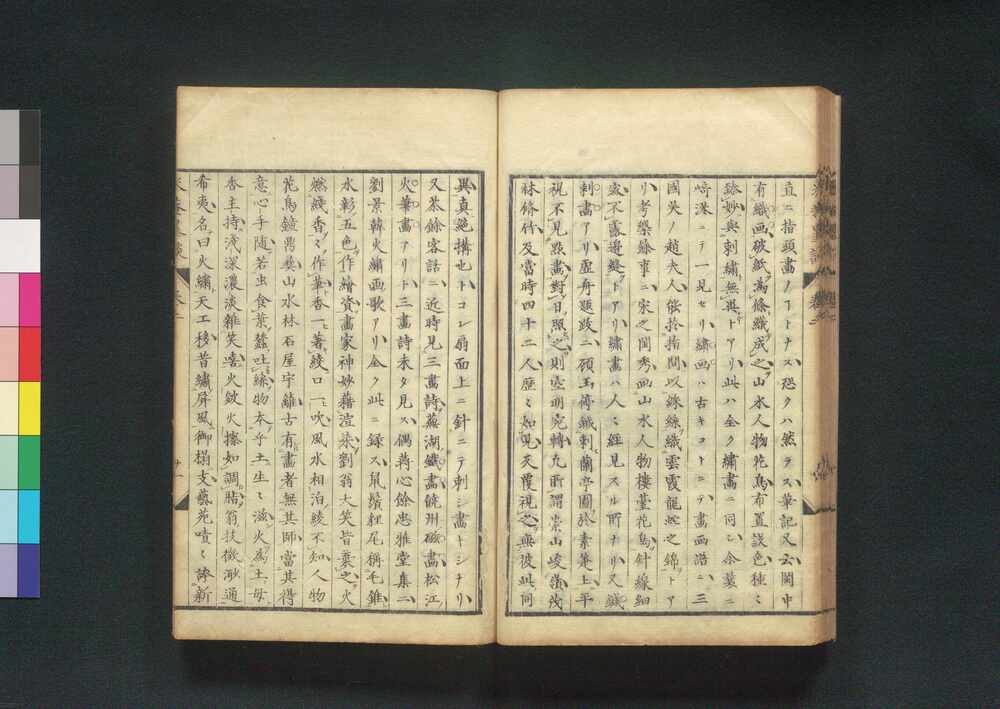 直ニ指頭畫ノヿトナス恐クハ然ラス筆記又云閩中
有織画破紙為條織成之山水人物花鳥布置設色種々
臻妙與刺繍無異トアリ此ハ全ク繍畫ニ同シ余葉ニ
﨑漢ニテ一見セリ繍画ハ古キコトニテ畫画譜ニ三
國吳ノ趙夫人能於指間以綵絲織雲霞龍蛇之錦トア
リ考槃餘事ニ宋之閨秀画山水人物樓臺花鳥針線細
密不露邊縫トアリ繍畫ハ人々経見スル所ナリ又鍼
刺畫アリ虚舟題跋ニ顧玉傳鍼刺蘭亭圖於素箑上平
視不見點畫對日照之則空明宛轉九所謂崇山峻嶺茂
林脩竹及當時四十二人歴々如見矣覆視之與彼此同
異真絶搆也トコレ扇面上ニ針ニテ刺シ畫トシナリ
又茶餘客話ニ近時見三畫詩蕪湖鐵畫饒州磁畫松江
火筆畫アリト三畫詩未タ見ス偶蒋心餘忠雅堂集ニ
劉景韓火繍画歌アリ全ク此ニ録ス鼠鬚狸尾稱毛錐
水彰五色作繪資畫家神妙藉渲染劉翁大笑皆棄之火
燃綫香々作筆香一著綾口一吹風水相泊綾不知人物
花鳥鐘鼎彝山水林石屋宇籬古有畫者無其師當其得
意心手随若虫食葉蠶吐絲物本乎土生々滋火為土母
香主持浅深濃淡雜笑嘻火斂火搽如調脂翁技微渺通
希夷名曰火繍天工移昔繍屏風御榻支藝苑嘖々誇新